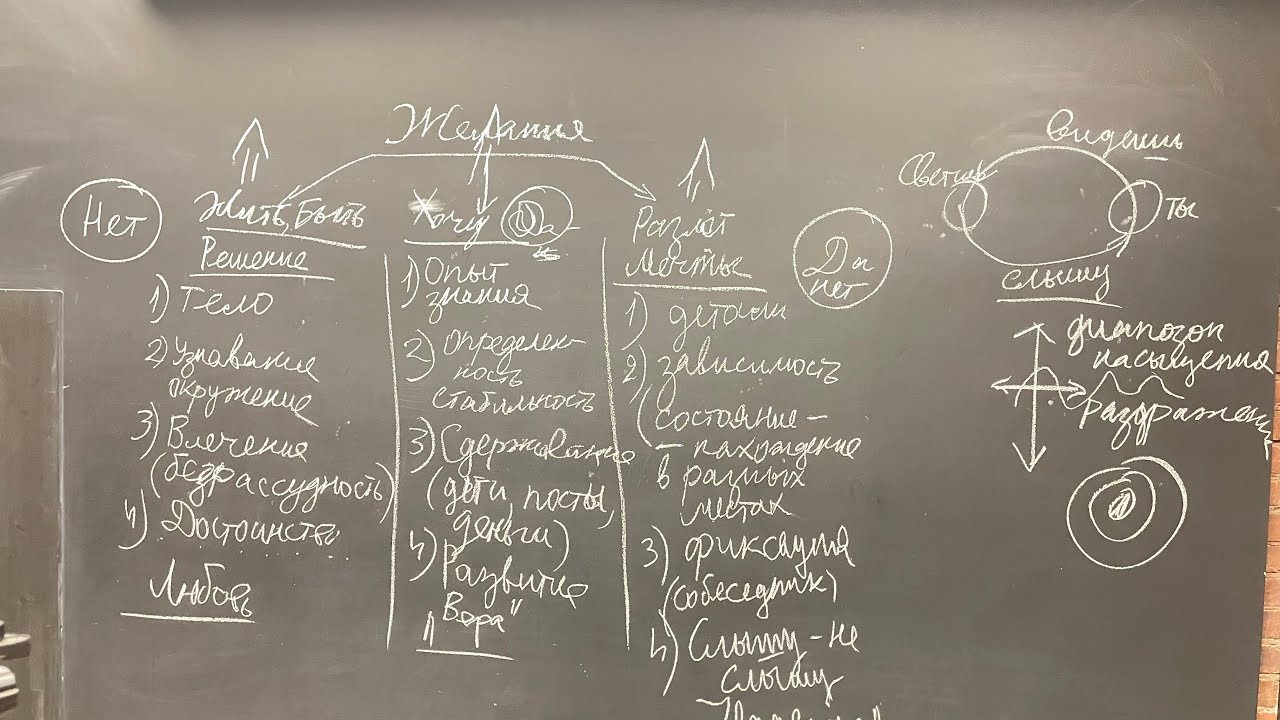 Желания
Нет
Жить, Быть
Решение
1) Тело
2) Узнавание
окружение
3) Влечение
(безрассудность)
4) Достоинство
Любовь
Хочу Да
1) Опыт
знания
2) Определен-
ность
стабильность
3) Сдерживание
(дети, посты,
деньги)
4) Развитие
"Вера"
Разлёт
Мечты
Да
нет
1) детали
2) зависимость
(состояние –
– нахождение
в разных
местах
3) фиксация
(собеседник)
4) Слышу - не
слышу
видишь
Светишь
Ты
слышу
диапозон
насыщения
раздражен